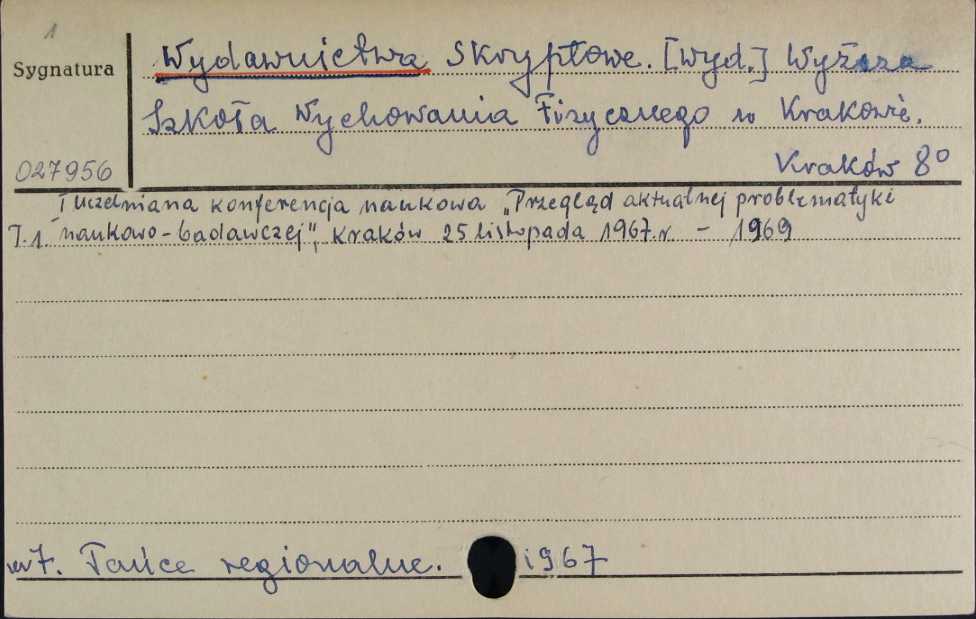 1
Wydawnictwa Skryptowe. [Wyd.] Wyższa
Sygnatura
Szkoła Wychowania Fizycznego w Krakowie.
027956
Kraków 8°
I uczelniana konferencja naukowa „Przegląd aktualnej problematyki
T.1 naukowo-badawczej", Kraków 25 listopada 1967.r - 1969
nr 7. Tańce regionalne. 1967